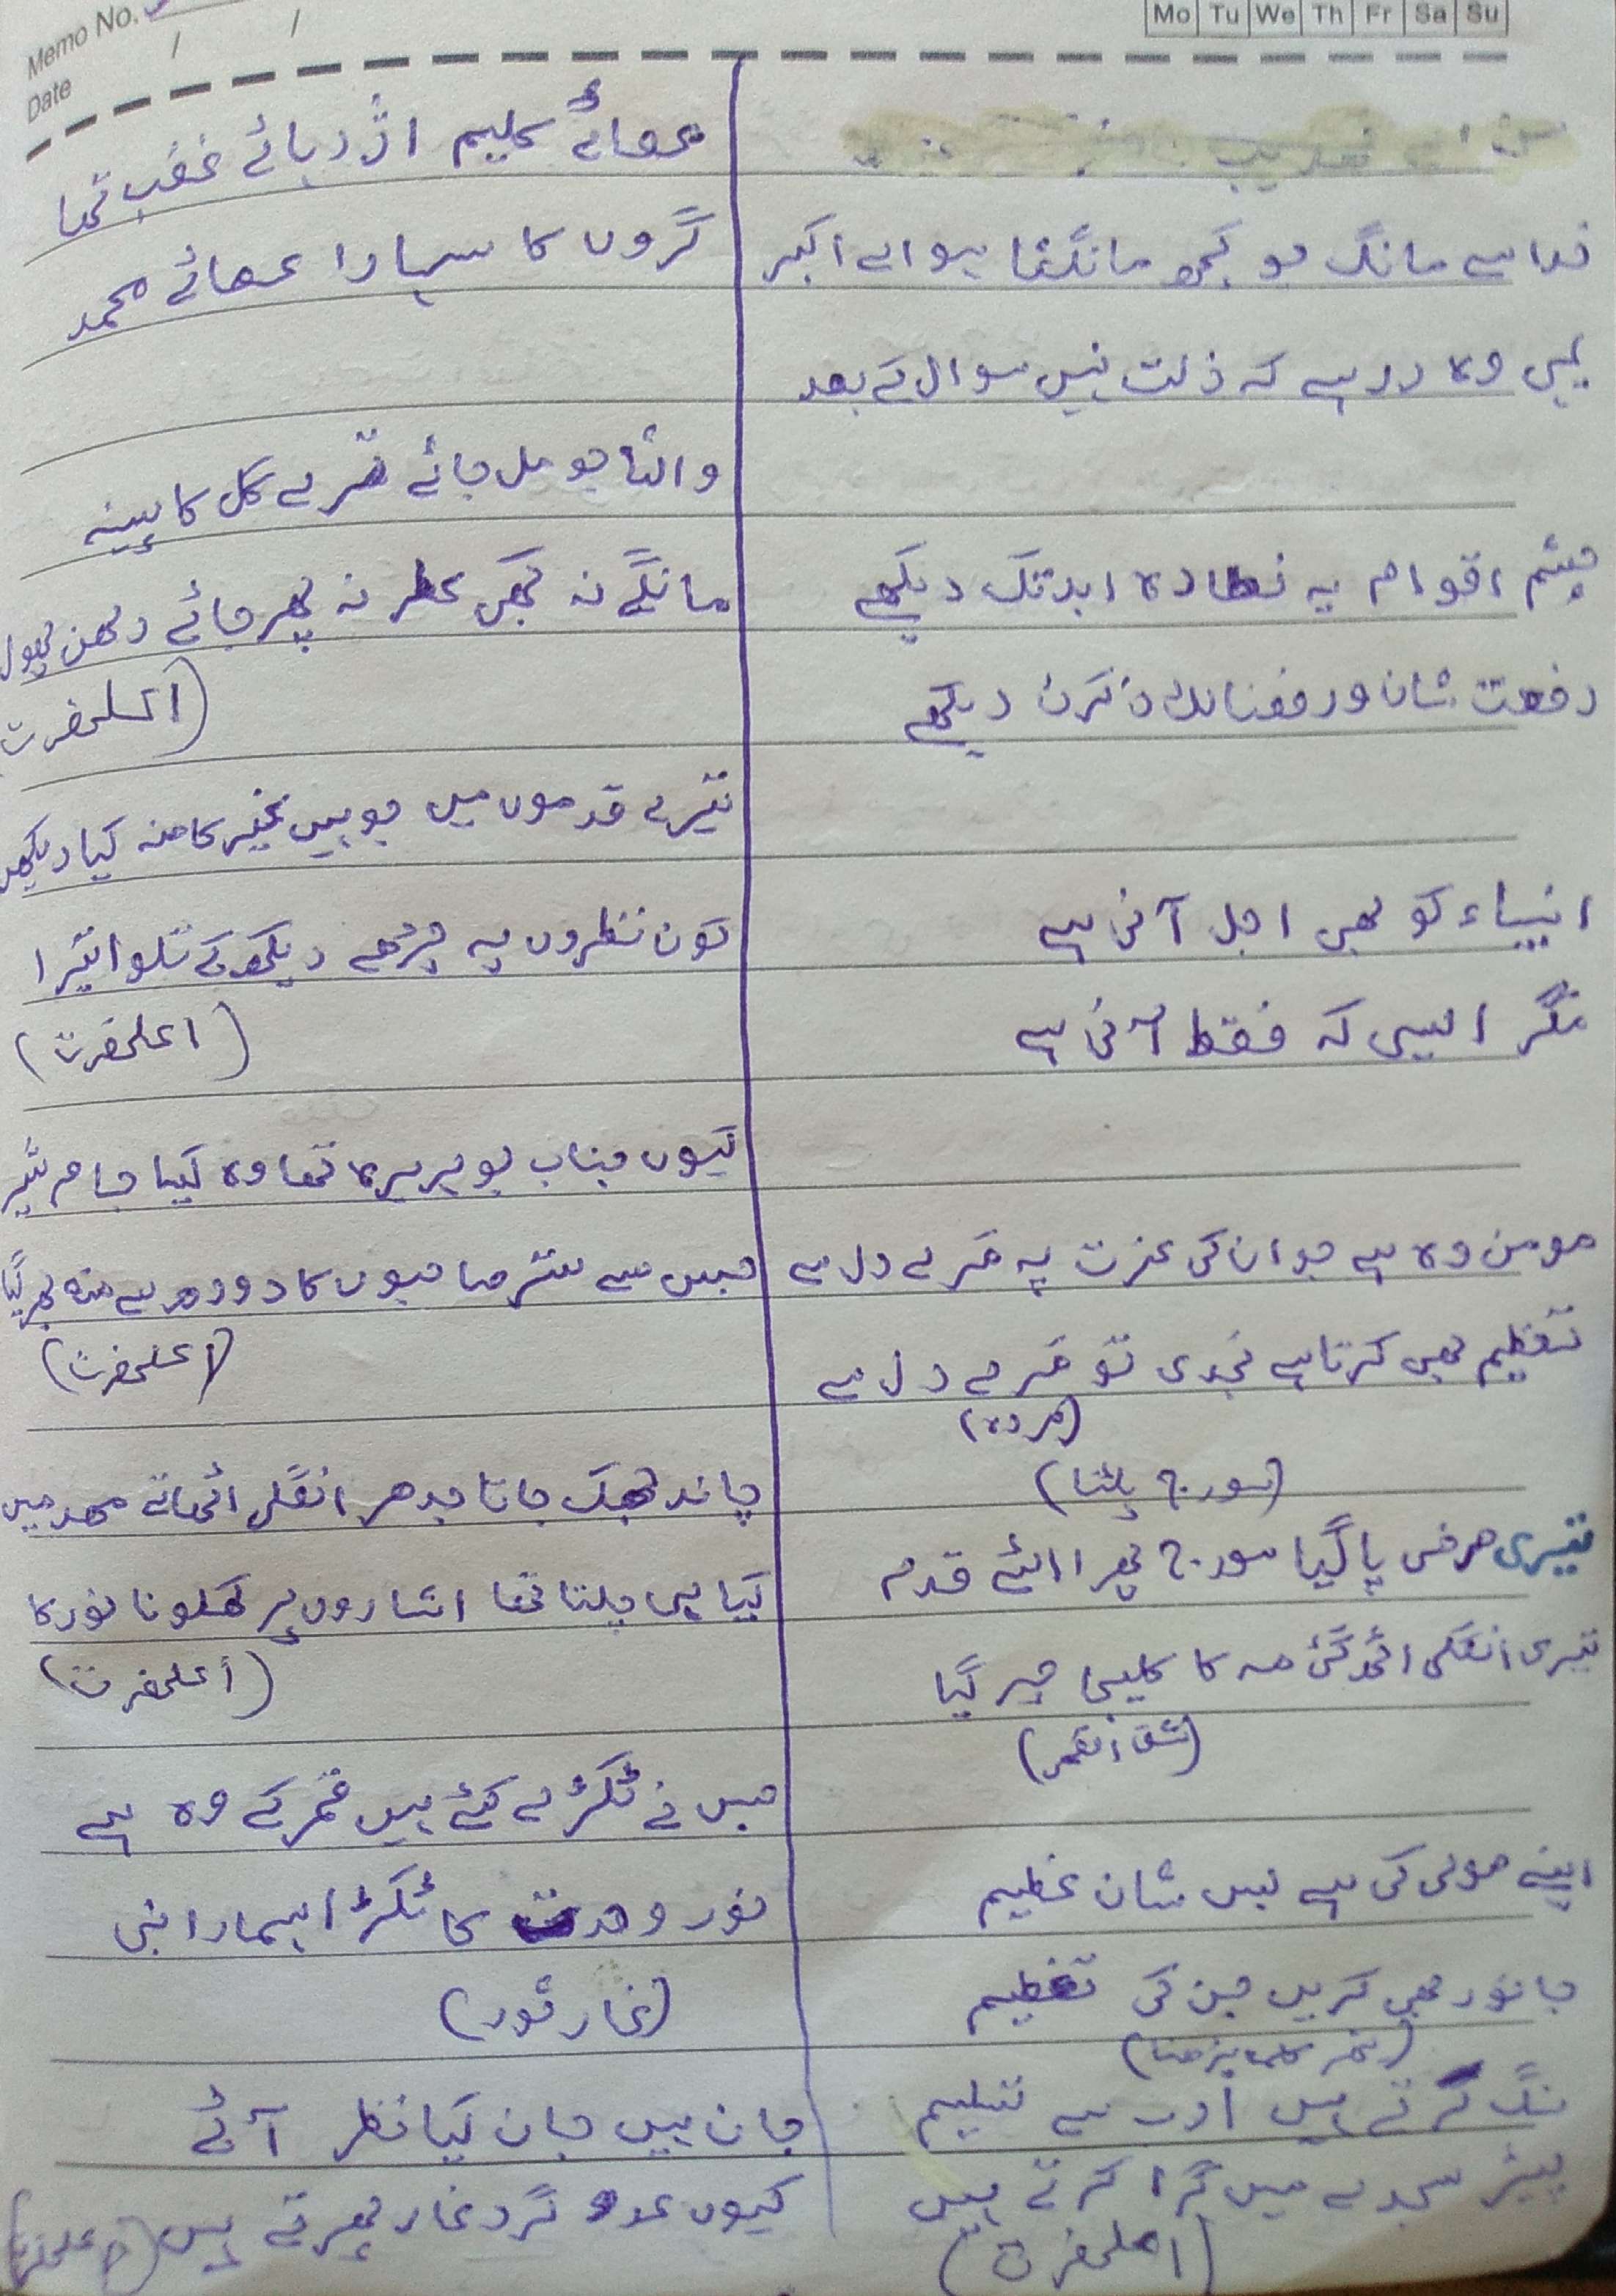 Memo No.
Date / /
Mo Tu We Th Fr Sa Su
خدا سے مانگ جو کچھ مانگنا ہو اے اکبر
یہی وہ در ہے کہ ذلت نہیں سوال کے بعد
چشم اقوام یہ نظارہ ابد تک دیکھے
رفعت شان ورفعنا لک ذکرک دیکھے
انبیاء کو بھی اجل آنی ہے
مگر ایسی کہ فقط آنی ہے
مومن وہ ہے جو ان کی عزت پہ مرے دل سے
تعظیم بھی کرتا ہے نجدی تو مرے دل سے
(مردہ)
(سورج پلٹنا)
تیری مرضی پا گیا سورج پھرا الٹے قدم
تیری انگلی اٹھ گئی مہ کا کلیجا چر گیا
(شق القمر)
اپنے مولی کی ہے بس شان عظیم
جانور بھی کریں جن کی تعظیم
(پتھر کلمہ پڑھنا)
سنگ کرتے ہیں ادب سے تسلیم
پیڑ سجدے میں گرا کرتے ہیں
(اعلحضرت)
عصائے کلیم اژدہائے غضب تھا
گروں کا سہارا عصائے محمد
واللہ جو مل جائے مرے گل کا پسینہ
مانگے نہ کبھی عطر نہ پھر چاہے دلھن پھول
(اعلحضرت)
تیرے قدموں میں جو ہیں غیر کا منہ کیا دیکھیں
کون نظروں پہ چڑھے دیکھ کے تلوا تیرا
(اعلحضرت)
کیوں جناب بوہریرہ تھا وہ کیسا جام شیر
جس سے ستر صاحبوں کا دودھ سے منہ پھر گیا
(اعلحضرت)
چاند جھک جاتا جدھر انگلی اٹھاتے مھد میں
کیا ہی چلتا تھا اشاروں پر کھلونا نور کا
(اعلحضرت)
جس نے ٹکڑے کئے ہیں قمر کے وہ ہے
نور وحدت کا ٹکڑا ہمارا نبی
(غار ثور)
جان ہیں جان کیا نظر آئے
کیوں عدو گرد غار پھرتے ہیں (اعلحضرت)